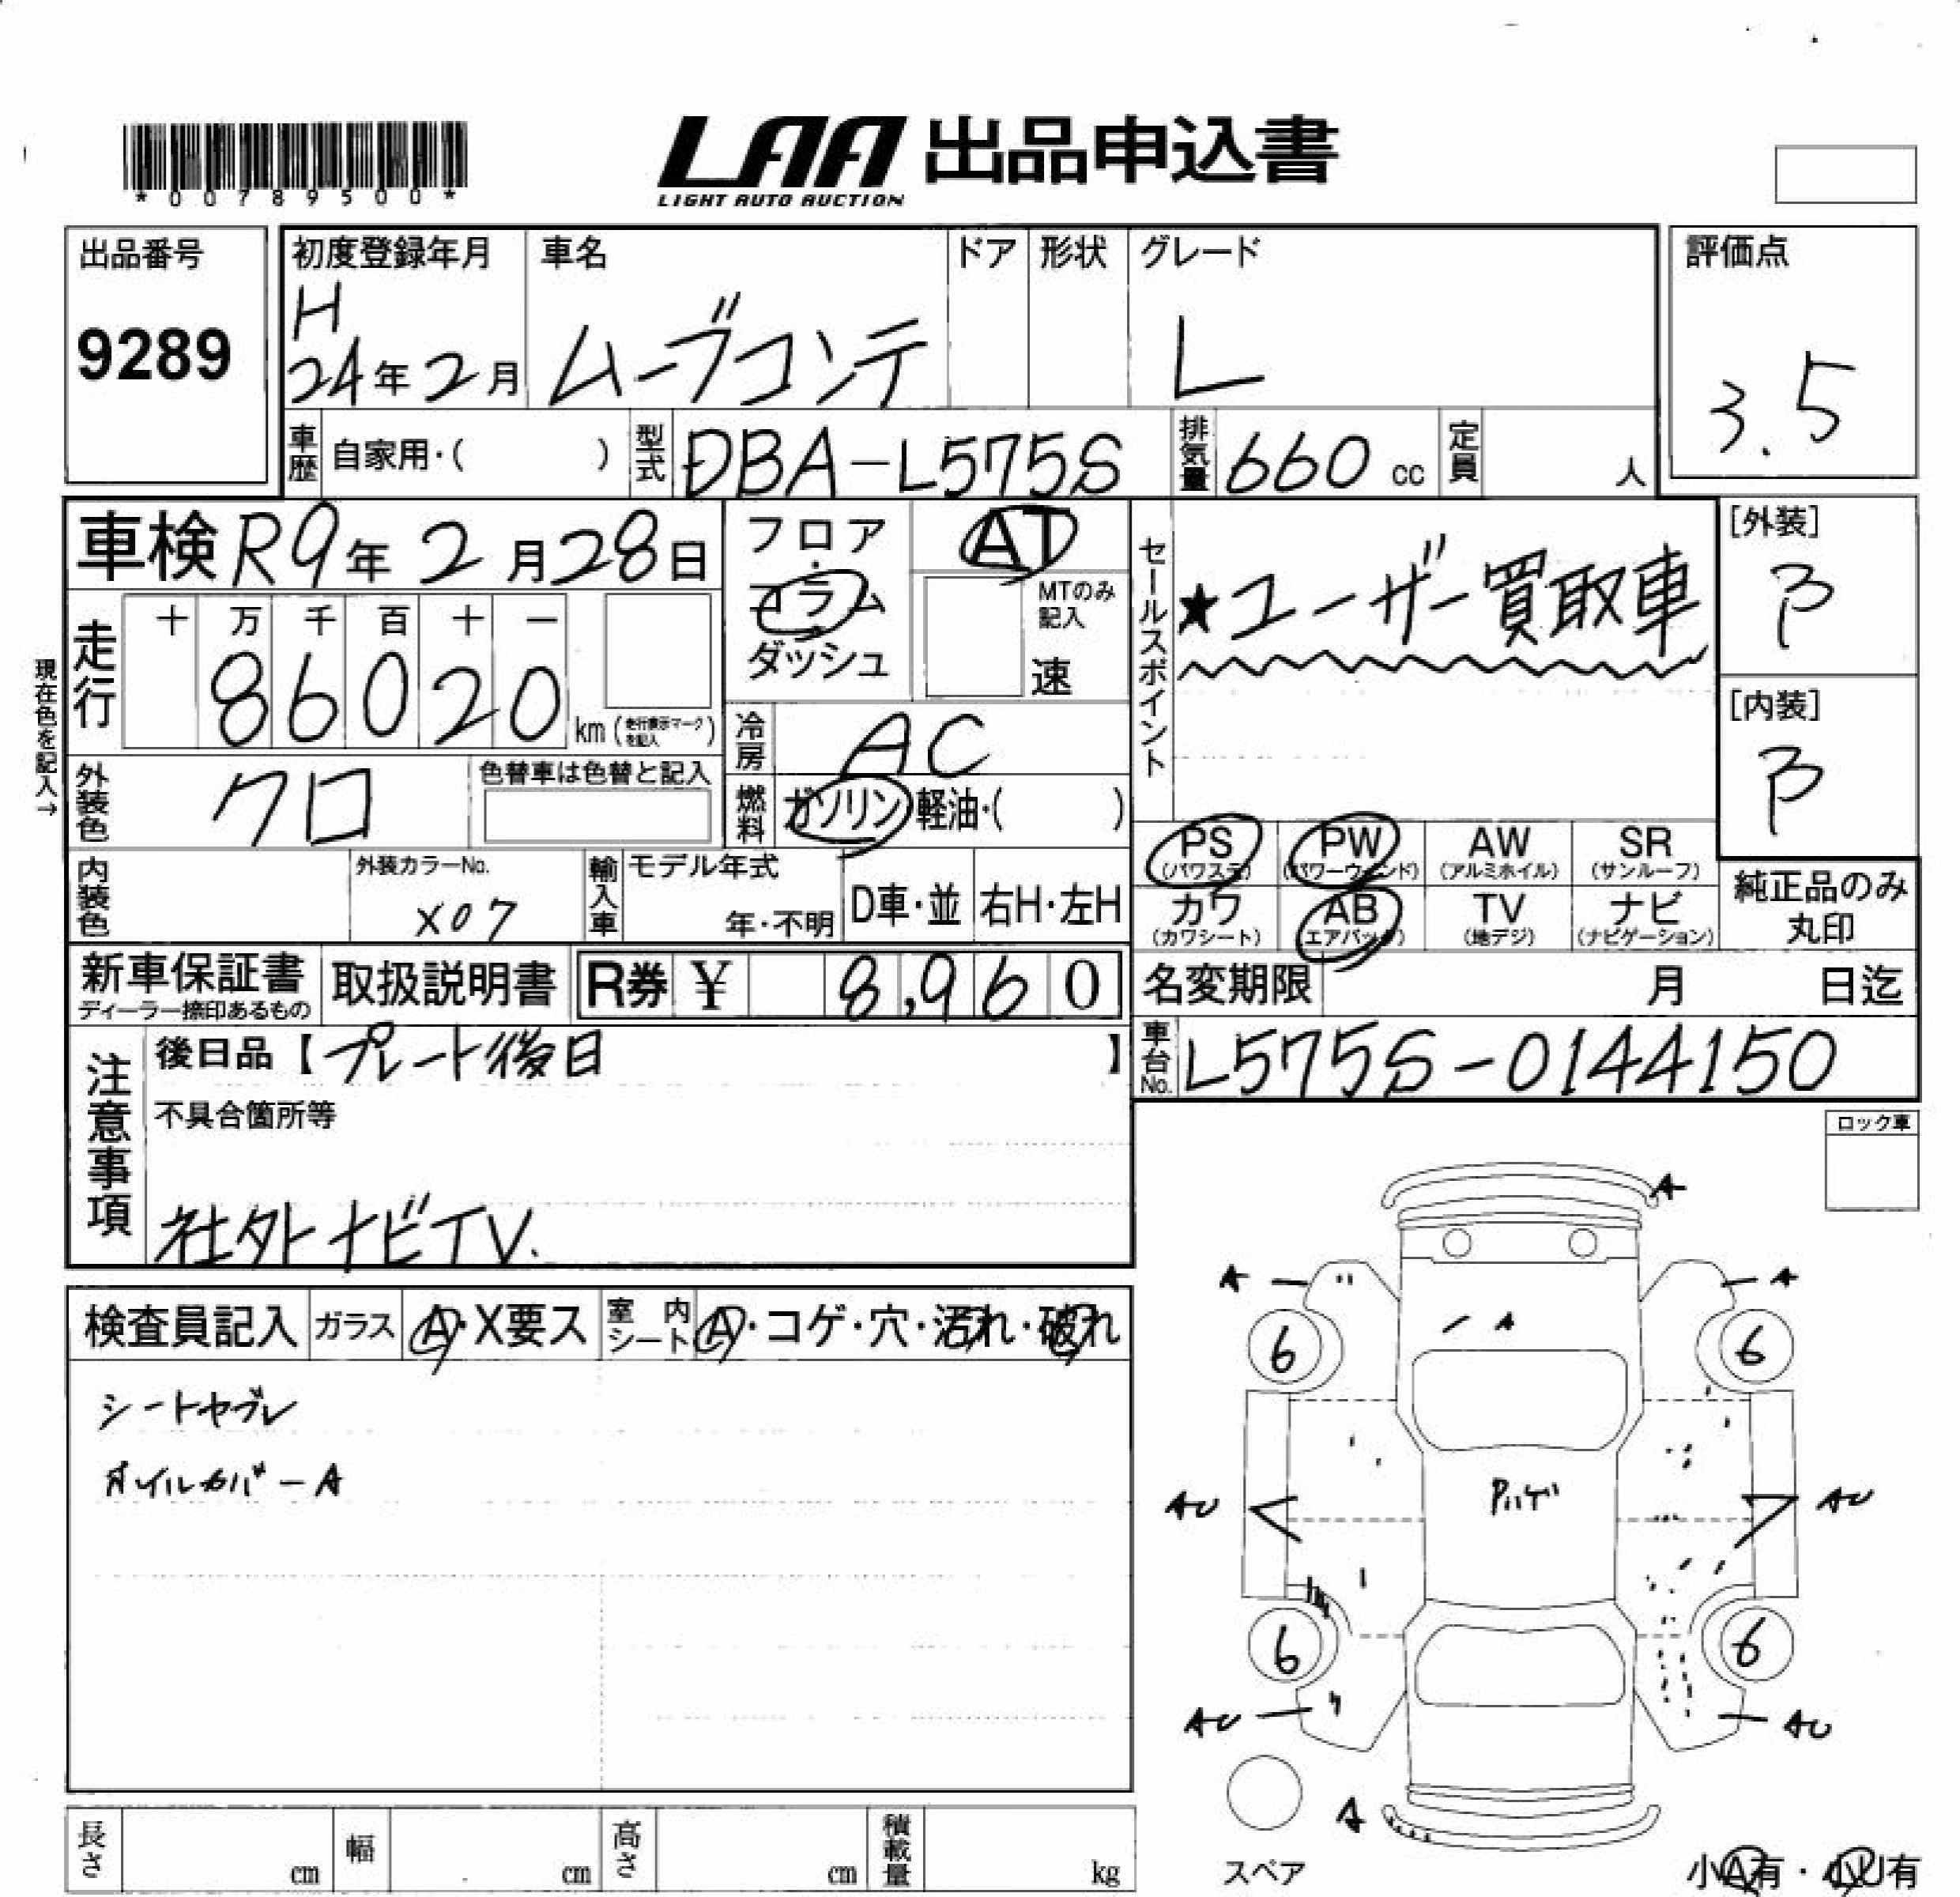 *00789500*
LAA 出品申込書
LIGHT AUTO AUCTION
出品番号
9289
初度登録年月
H
24年2月
車名
ムーブコンテ
ドア
形状
グレード
L
評価点
3.5
車歴 自家用・( )
型式 DBA-L575S
排気量 660 cc
定員 人
車検 R9年 2月28日
フロア・コラム・ダッシュ
AT
MTのみ記入
速
セールスポイント
★ユーザー買取車
[外装]
B
[内装]
B
現在色を記入→
走行
十 万 千 百 十 一
86020
km (走行表示マークを記入)
冷房 AC
外装色 クロ
色替車は色替と記入
燃料 ガソリン・軽油・( )
PS (パワステ)
PW (パワーウインド)
AW (アルミホイル)
SR (サンルーフ)
カワ (カワシート)
AB (エアバック)
TV (地デジ)
ナビ (ナビゲーション)
純正品のみ丸印
内装色
外装カラーNo.
X07
輸入車
モデル年式
年・不明
D車・並
右H・左H
新車保証書
ディーラー捺印あるもの
取扱説明書
R券 ¥ 8,960
名変期限 月 日迄
車台No. L575S-0144150
注意事項
後日品【プレート後日】
不具合箇所等
社外ナビTV.
ロック車
検査員記入
ガラス A・X要ス
室内シート A・コゲ・穴・汚れ・破れ
シートヤブレ
オイルカバーA
A
A A
A
6 6
Pハゲ
AU AU
6 6
AU AU
A
スペア
小A有・小U有
長さ cm
幅 cm
高さ cm
積載量 kg